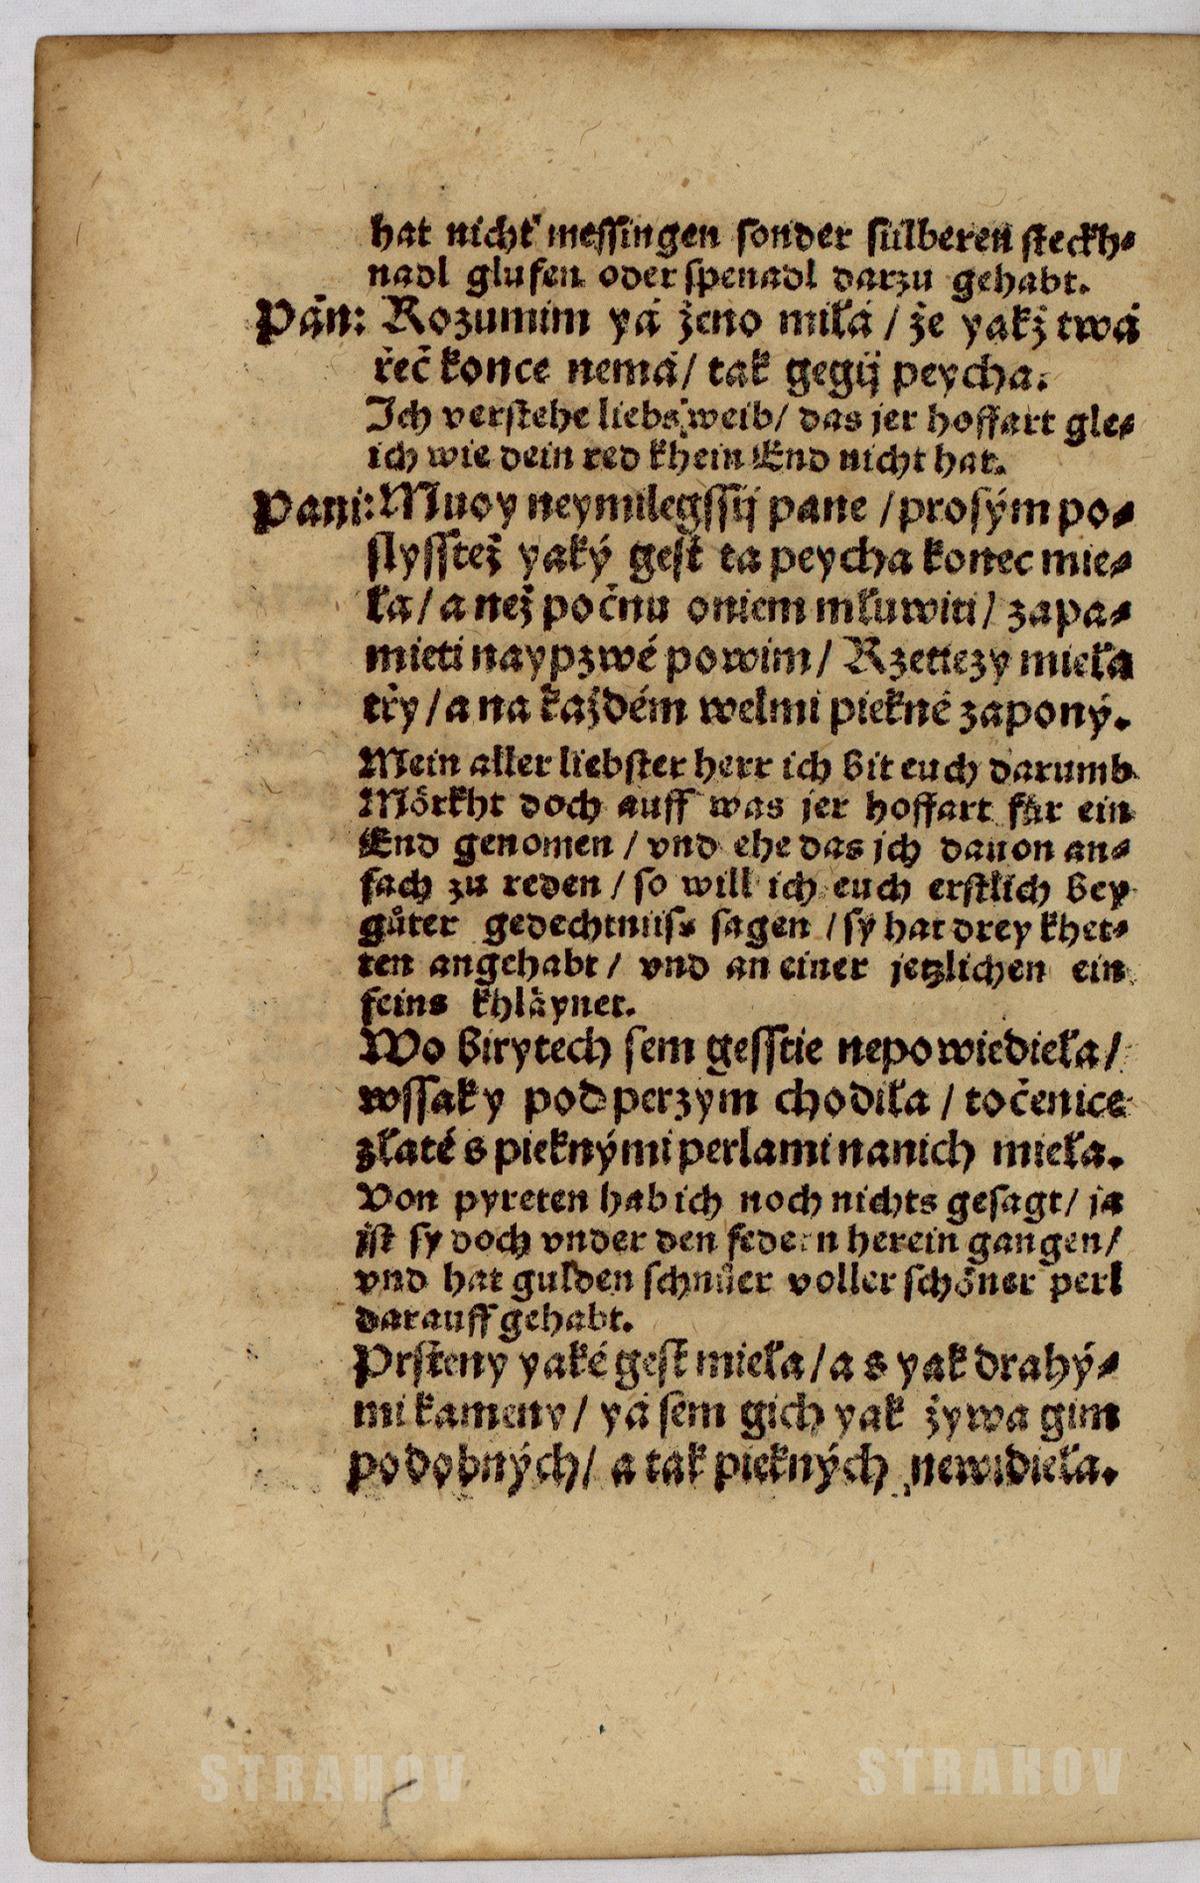 hat nicht messingen sonder sülberen steckh⸗
nadl glufen oder spenadl darzu gehabt.
Pán: Rozumím yá ženo miłá / že yakž twá
řeč konce nemá / tak gegij peycha.
Ich verstehe liebs weib / das jer hoffart gle⸗
ich wie dein red khein End nicht hat.
Pani: Muoy neymilegssij pane / prosým po⸗
slyssťež yaký gest ta peycha konec mie⸗
ła / a než počnu oniem młuwiti / zapa⸗
mieti naypzwé powim / Rzetiezy mieła
třy / a na každém welmi piekné zapony.
Mein aller liebster herr ich bit euch darumb
Mörkht doch auff was jer hoffart für ein
End genomen / vnd ehe das ich dauon an⸗
fach zu reden / so will ich euch erstlich bey
gůter gedechtnüs sagen / sy hat drey khet⸗
ten angehabt / vnd an einer jetzlichen ein
feins khläynet.
Wo birytech sem gesstie nepowiedieła /
wssaky pod perzym chodiła / točenice
złaté s pieknými perlami nanich mieła.
Von pyreten hab ich noch nichts gesagt / ja
ist sy doch vnder den federn herein gangen /
vnd hat gulden schnüer voller schöner perl
darauff gehabt.
Prsteny yaké gest mieła / a s yak drahý⸗
mi kameny / yá sem gich yak žywa gim
podobných / a tak piekných newidieła.
STRAHOV STRAHOV